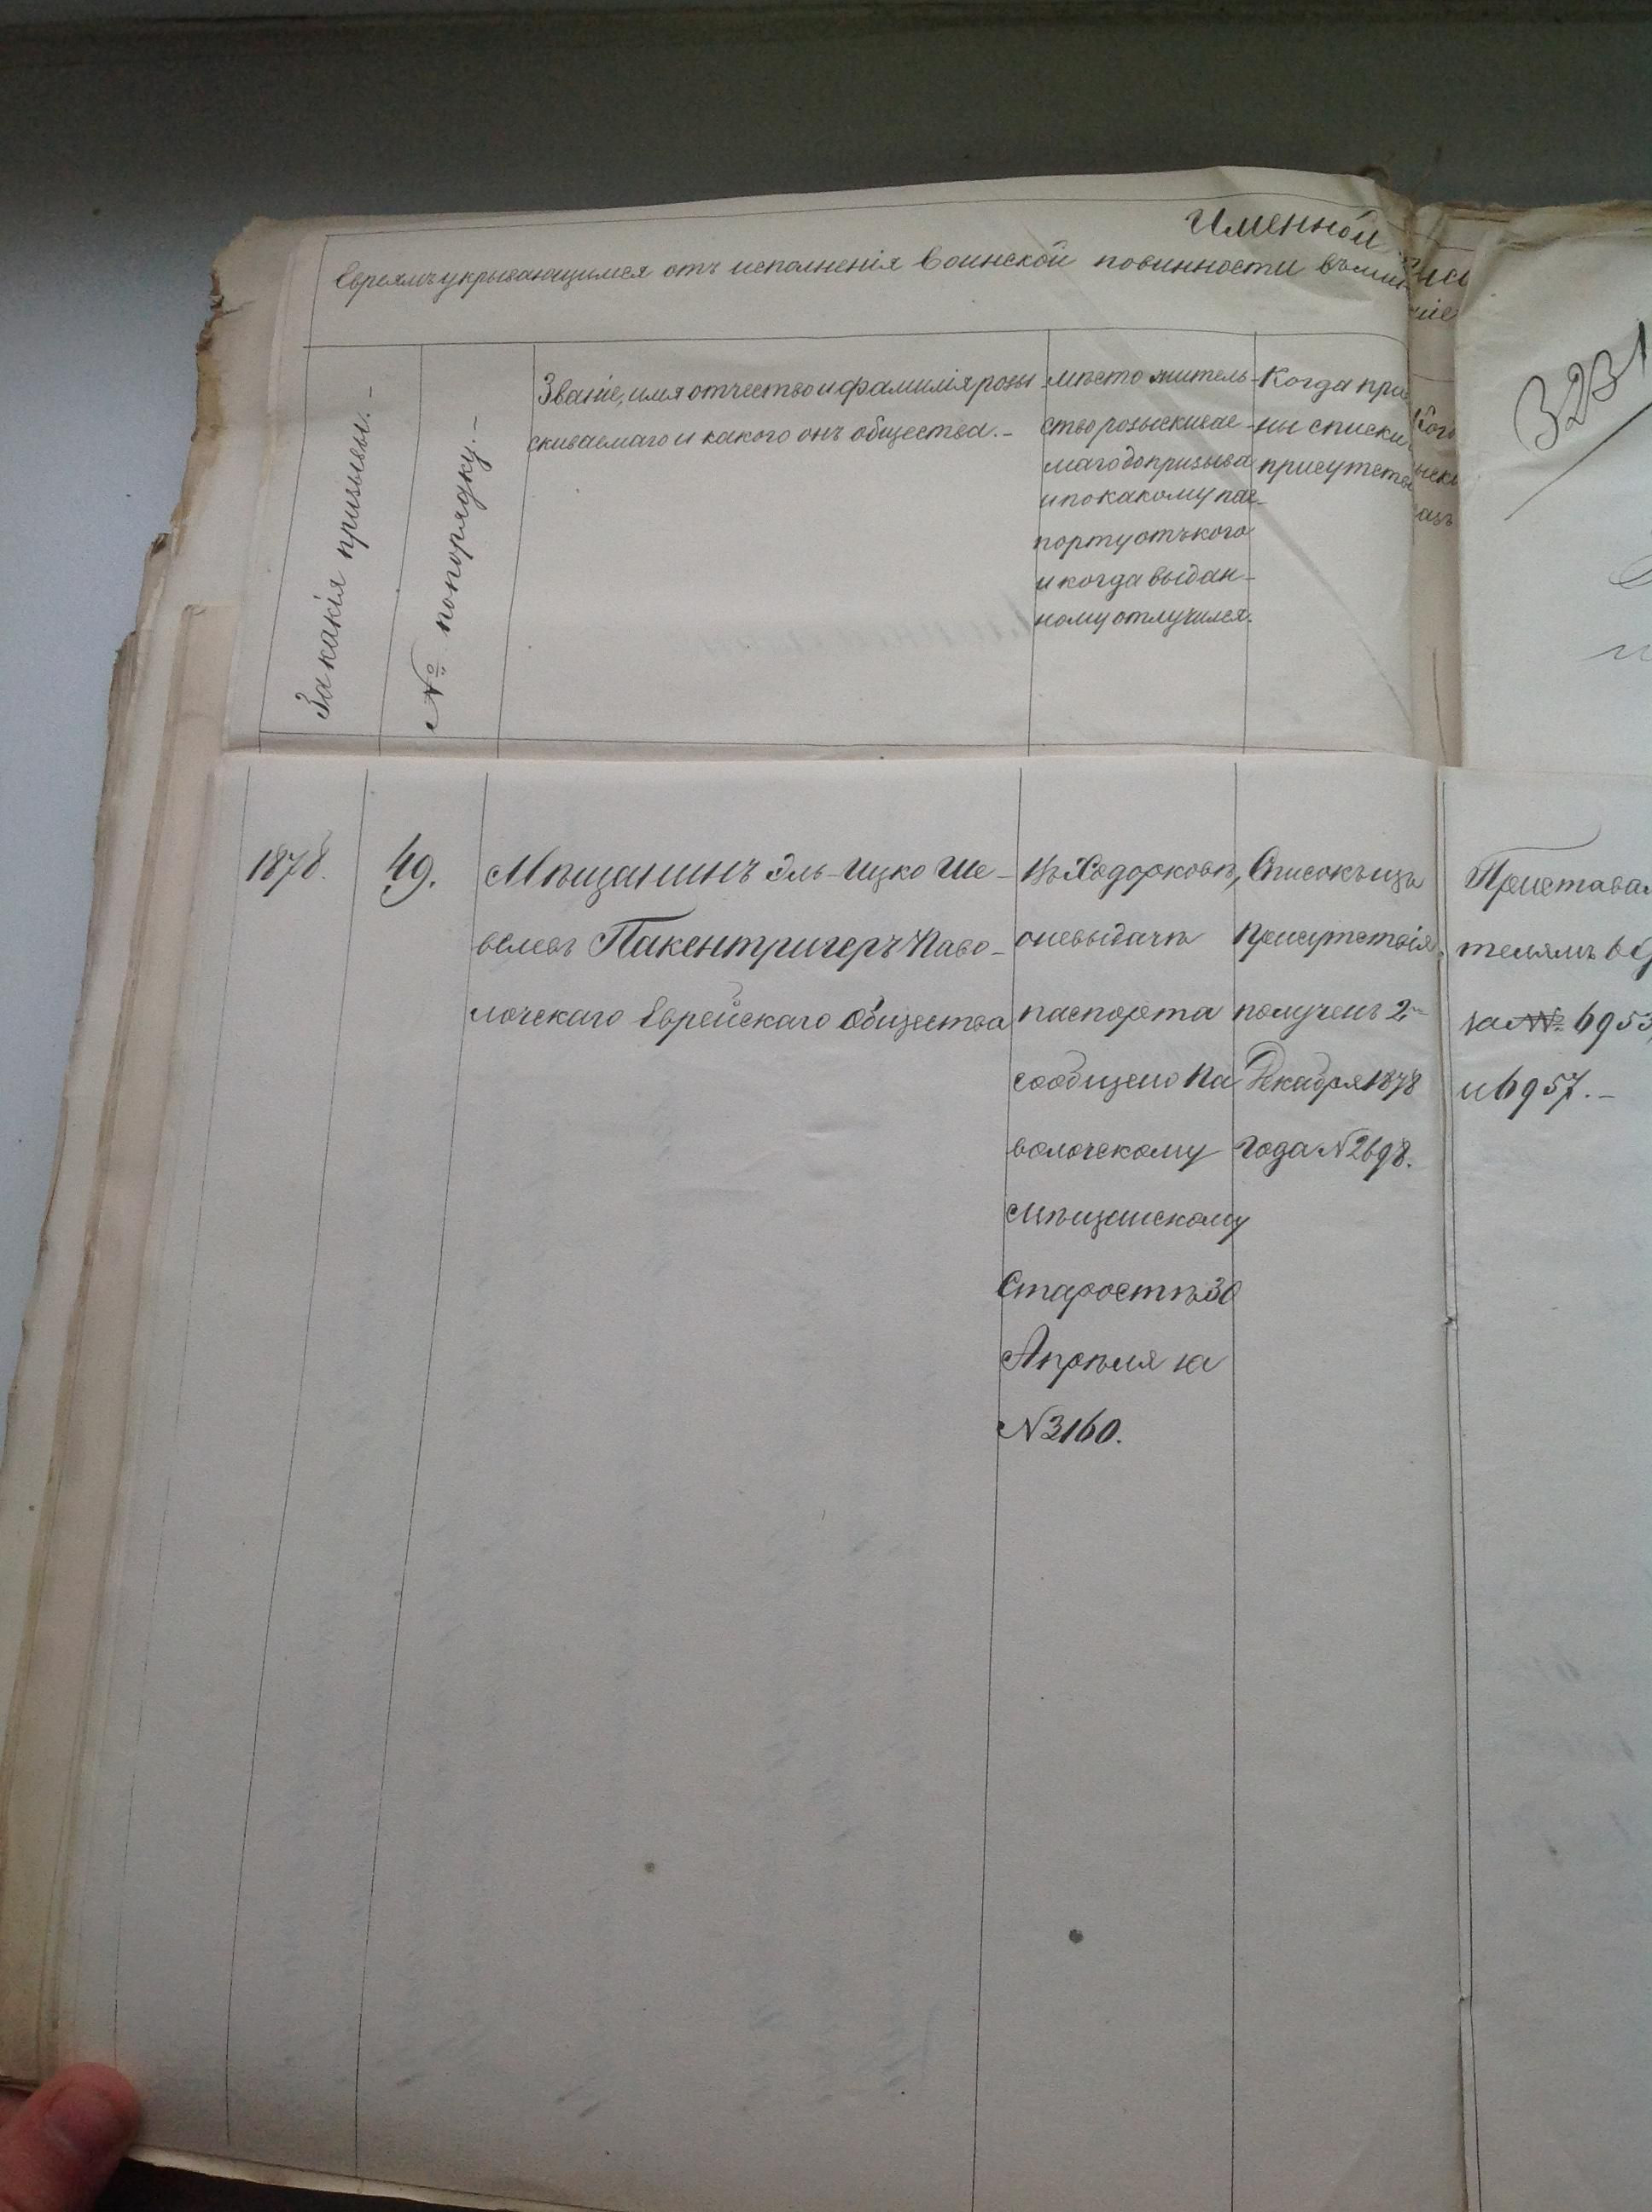 Именной
Евреямъ укрывающимся отъ исполненія воинской повинности
За какія призывы. –
№ по порядку. –
Званіе, имя отчество и фамилія розы-
скиваемаго и какого онъ общества. –
Мѣсто житель-
ство розыскивае-
маго до призыва
и по какому пас-
порту отъ кого
и когда выдан-
ному отлучился.
Когда
ны списки
1878.
49.
Мѣщанинъ Эль-Ицко Ше-
велевъ Пакентригеръ Паво-
лочскаго Еврейскаго Общества
Въ Ходорковѣ,
о невыдачѣ
паспорта
сообщено Па
волочскому
Мѣщанскому
Старостѣ 30
Апрѣля за
N 3160.
Списокъ изъ
Присутствія
полученъ 2го
Декабря 1878
года N 2698.
телямъ
за №№ 6953,
и 6957. –
3231